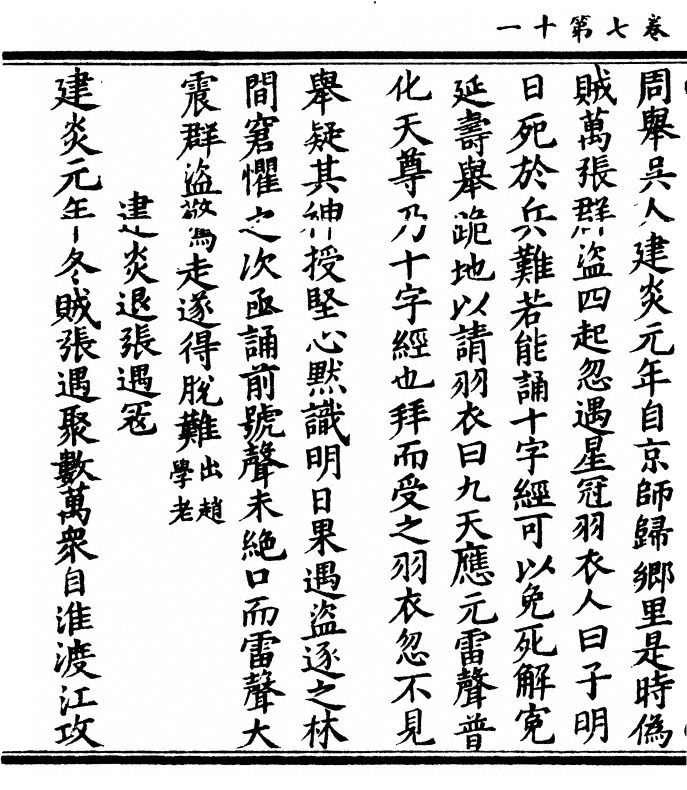 卷七第十一
周舉吳人建炎元年自京師歸鄉里是時偽
賊萬張群盜四起忽遇星冠羽衣人曰子明
日死於兵難若能誦十字經可以免死解寃
延壽舉跪地以請羽衣曰九天應元雷聲普
化天尊乃十字經也拜而受之羽衣忽不見
舉疑其神授堅心默識明日果遇盜逐之林
間窘懼之次亟誦前號聲未絕口而雷聲大
震群盜驚走遂得脫難出趙學老
建炎退張遇宼
建炎元年冬賊張遇聚數萬衆自淮渡江攻